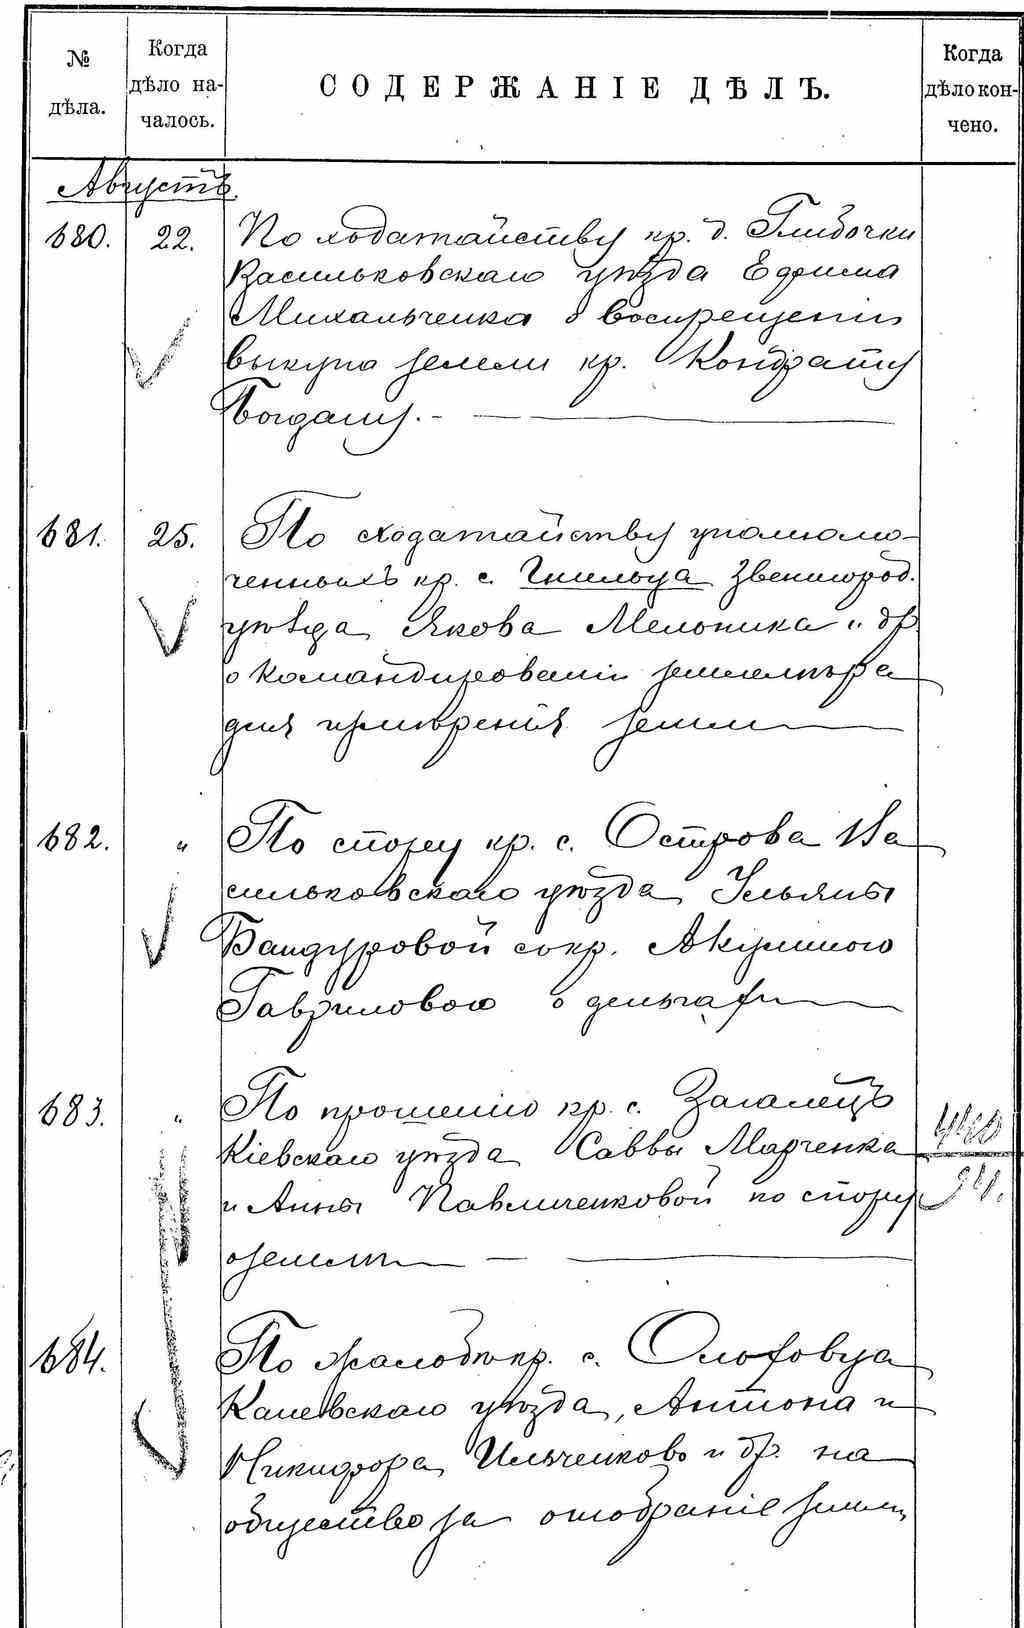 № дѣла.
Когда дѣло началось.
СОДЕРЖАНІЕ ДѢЛЪ.
Когда дѣло кончено.
Августъ
680. 22. По ходатайству кр. д. Глибочки
Васильковскаго уѣзда Ефима
Михальченка о воспрещеніи
выкупа земли кр. Кондрату
Богдану.
681. 25. По ходатайству уполномо-
ченныхъ кр. с. Гнильца Звенигород.
уѣзда Якова Мельника и др.
о командированіи землемѣра
для измѣренія земли
682. " По спору кр. с. Острова Ва
сильковскаго уѣзда Ульяны
Бандуровой съ кр. Акулиною
Гавриловою о деньгахъ
683. " По прошенію кр. с. Загалецъ
Кіевскаго уѣзда Саввы Марченка
и Анны Павличенковой по спору
о земли
684. По жалобѣ кр. с. Ольховца
Каневскаго уѣзда, Антона и
Никифора Ильченковъ и др. на
общество за отобраніе земли